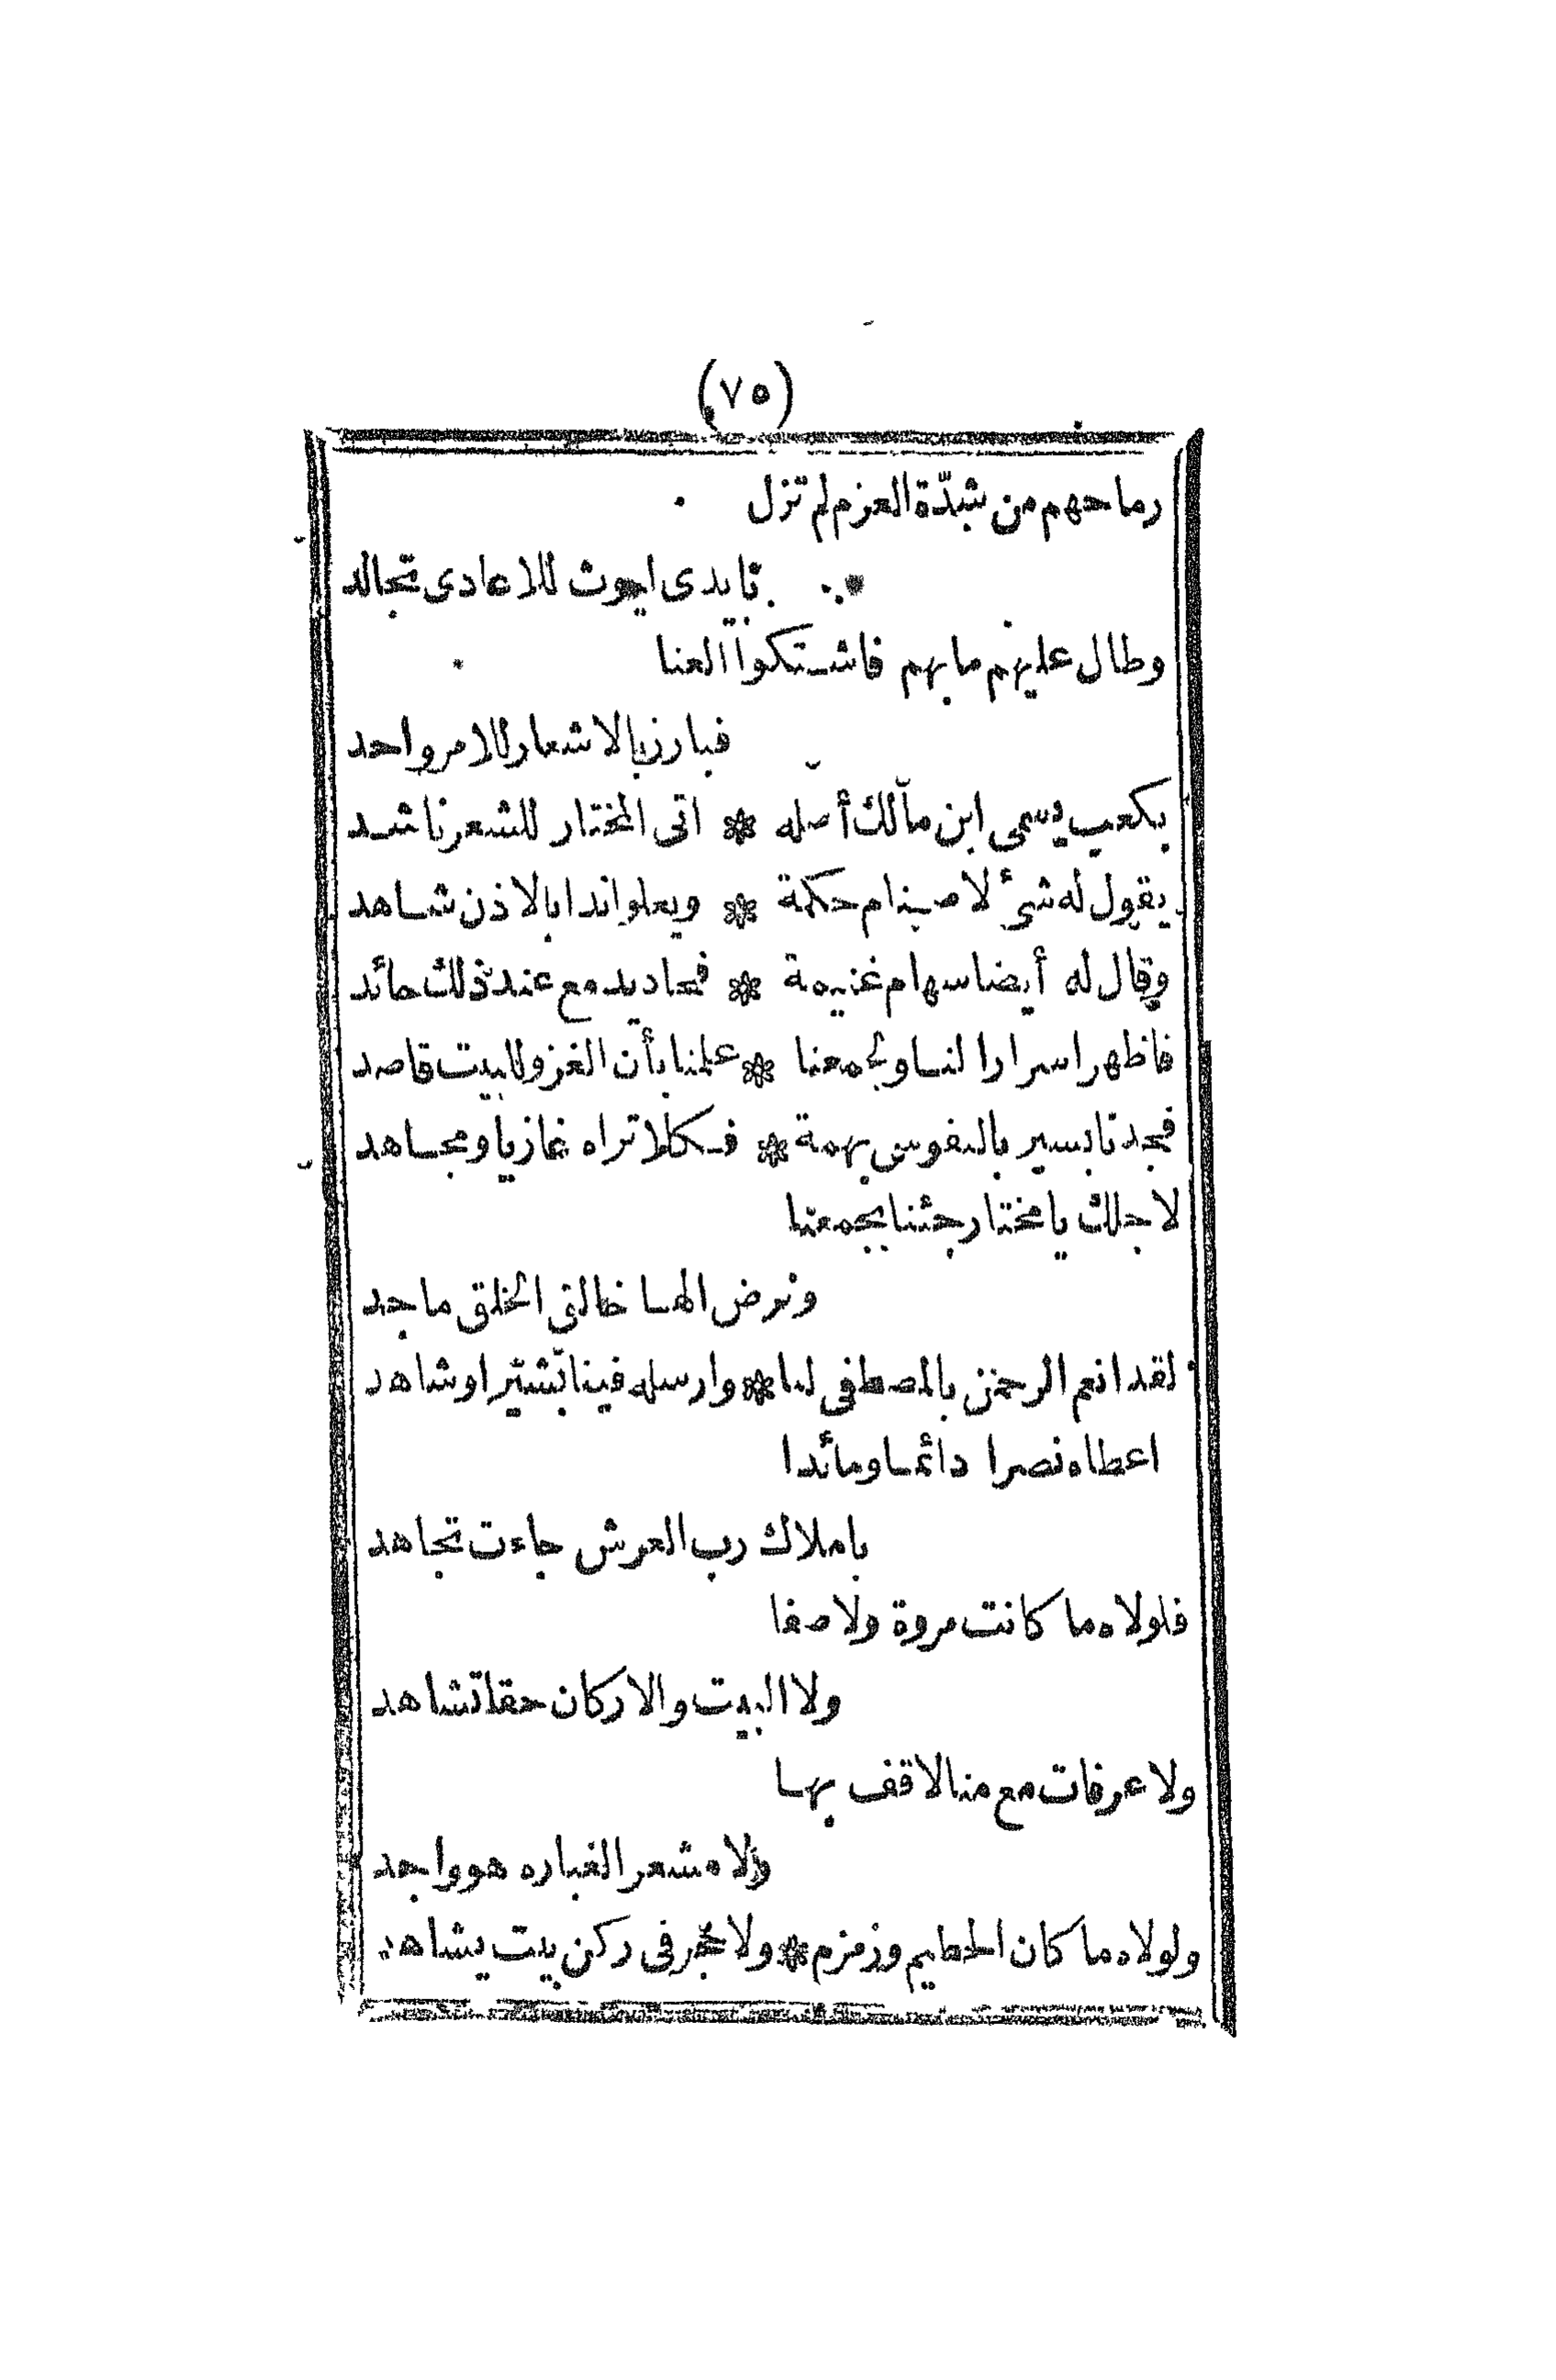 (٧٥)
رماحهم من شدّة العزم لم تزل
بأيدى ليوث للاعادى تجالد
وطال عليهم ما بهم فاشتكوا العنا
فبارز بالاشعار للامر واحد
بكعب يسمى ابن مالك أصله * اتى المختار للشعر ناشد
يقول له شئ لاصنام حكمة * ويعلو اندا بالاذن شاهد
وقال له أيضا سهام غنيمة * فجاد يدمع عند ذلك حائد
فاظهر اسرارا لنا ولجمعنا * علمنا بأن الغزو للبيت قاصد
فجدنا بسير بالنفوس بهمة * فكلا تراه غازيا ومجاهد
لاجلك يا مختار جئنا بجمعنا
ونرض الها خالق الخلق ماجد
لقد انعم الرحمن بالمصطفى لنا * وارسله فينا بشيرا وشاهد
اعطاه نصرا دائما ومائدا
باملاك رب العرش جاءت تجاهد
فلولاه ما كانت مروة ولا صفا
ولا البيت والاركان حقا تشاهد
ولا عرفات مع منا لاقف بها
ولا مشعر الغباره هو واجد
ولولاه ما كان الحطيم وزمزم * ولا حجر فى ركن بيت يشاهد